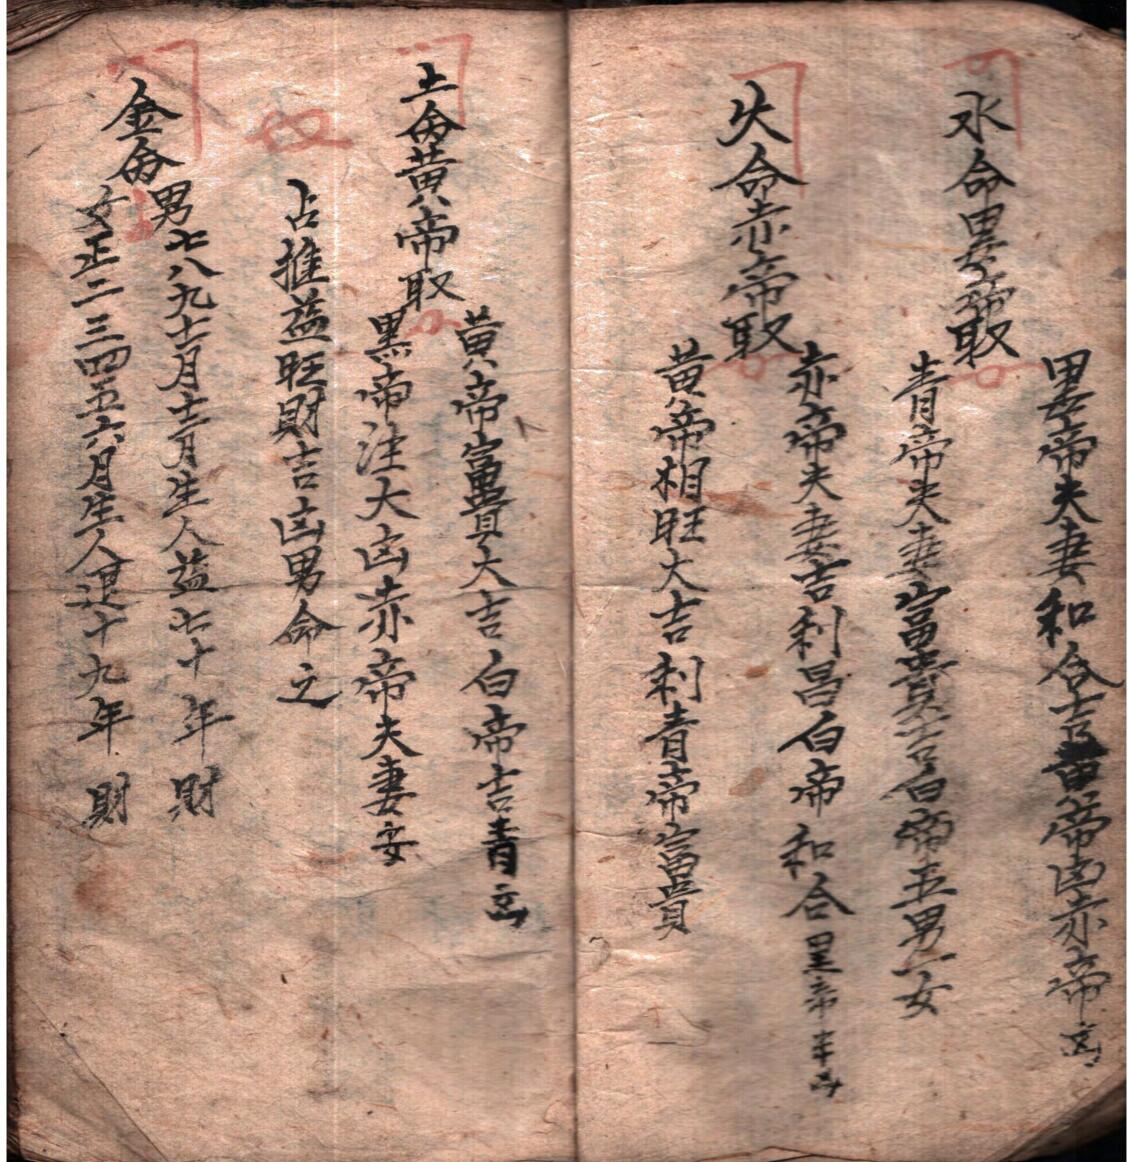 水命黑帝取
黑帝夫妻和合吉黄帝凶赤帝凶
青帝夫妻富貴吉白帝五男二女
火命赤帝取
赤帝夫妻吉利昌白帝和合黑帝半凶
黄帝相旺大吉利青帝富貴
土命黄帝取
黄帝富貴大吉白帝吉青凶
黑帝注大凶赤帝夫妻安
占推益旺財吉凶男命之
金命
男七八九十月十二月生人益七十年財
女正二三四五六月生人退十九年財